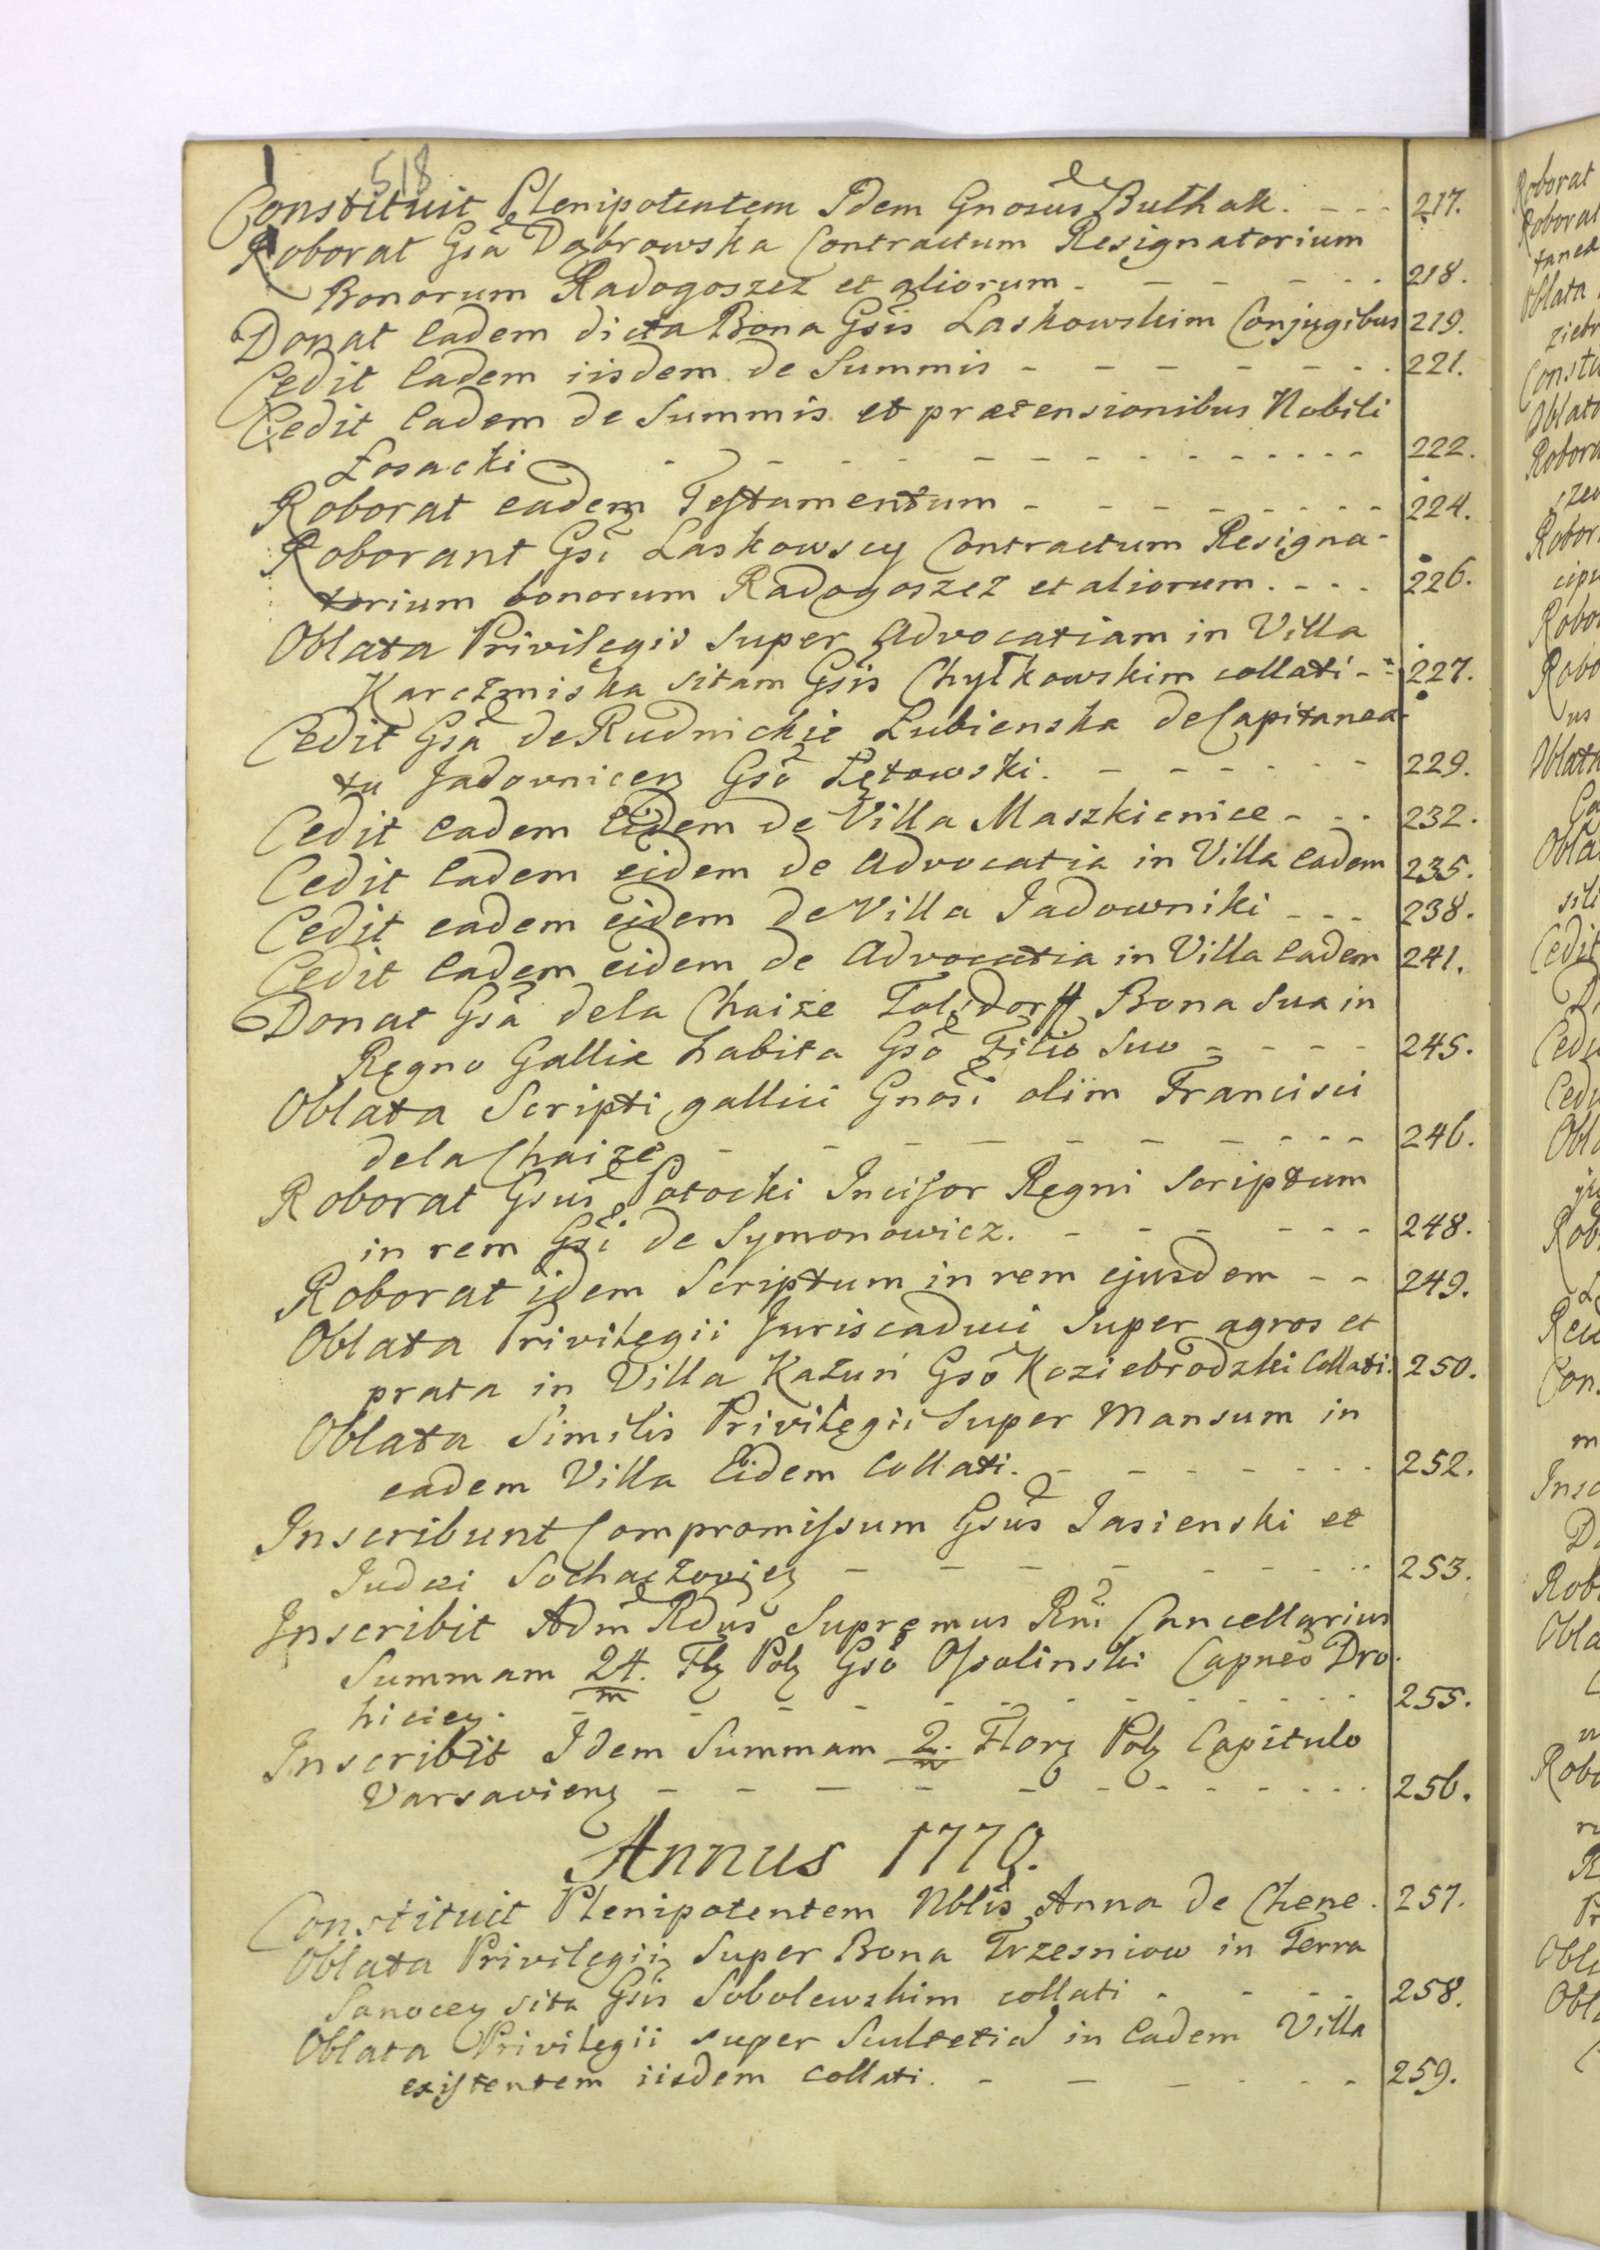 518
Constituit Plenipotentem Idem Gnosus Bułhak. - - - 217.
Roborat Gsa Dąbrowska Contractum Resignatorium
Bonorum Radogoszez et aliorum - - - - - 218.
Donat Eadem dicta Bona Gsis Laskowskim Conjugibus 219.
Cedit Eadem iisdem de Summis - - - - - - - 221.
Cedit Eadem de Summis et prætensionibus Nobili
Łosacki - - - - - - - - - - - 222.
Roborat eadem Testamentum - - - - - - - - 224.
Roborant Gsi Laskowscy Contractum Resigna-
torium bonorum Radogoszez et aliorum. - - - 226.
Oblata Privilegis super Advocatiam in Villa
Karczmiska sitam Gsis Chyłkowskim collati - - 227.
Cedit Gsa de Rudnickie Łubienska de Capitanea-
tu Jadovnicen Gso Łętowski. - - - - - - 229.
Cedit eadem Eidem de Villa Maszkienice - - - 232.
Cedit Eadem eidem de Advocatia in Villa Eadem 235.
Cedit eadem eidem de Villa Jadowniki - - - 238.
Cedit Eadem eidem de Advocatia in Villa Eadem 241.
Donat Gsa de la Chaize Tolsdorff Bona Sua in
Regno Galliæ habita Gso Filio Suo - - - - 245.
Oblata Scripti gallici Gnosi olim Francisci
de la Chaize - - - - - - - - - 246.
Roborat Gsus Potocki Incisor Regni Scriptum
in rem Gsi de Symonowicz. - - - - - - 248.
Roborat idem Scriptum in rem ejusdem - - 249.
Oblata Privilegii Juriscaduci Super agros et
prata in Villa Kazuń Gso Koziebrodzki Collati. 250.
Oblata Similis Privilegii Super Mansum in
eadem Villa Eidem Collati. - - - - - - - 252.
Inscribunt Compromissum Gsus Jasienski et
Judæi Sochaczovien - - - - - - - - 253.
Inscribit Adm Rdus Supremus Rni Cancellarius
Summam 24/m Fl Pol Gso Ossolinski Capneo Dro-
hicien. - - - - - - - - - - - - 255.
Inscribit Idem Summam 2/m Flor Pol Capitulo
Varsavien - - - - - - - - - - - 256.
Annus 1770.
Constituit Plenipotentem Nblis Anna de Chene. 257.
Oblata Privilegii Super Bona Trzesniow in Terra
Sanocen sita Gsis Sobolewskim collati - - - - 258.
Oblata Privilegii super Scultetia in Eadem Villa
existentem iisdem collati. - - - - - - 259.